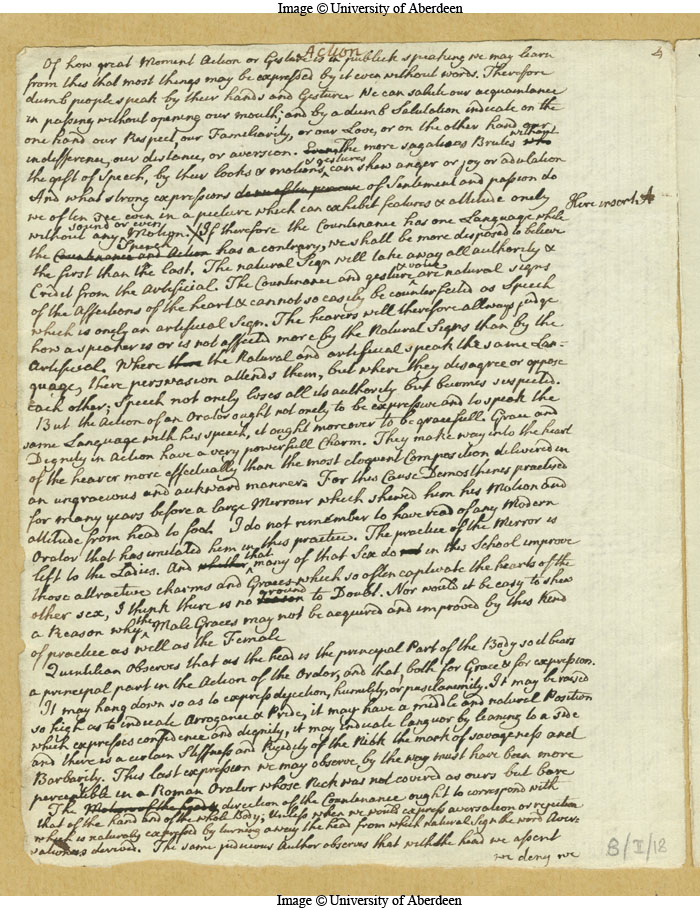 Image © University of Aberdeen
Action
4
Of how great Moment Action or Gesture is in publick speaking we may learn
from this that most things may be expressed by it even without words. Therefore
dumb people speak by their hands and Gestures We can salute our acquaintance
in passing without opening our mouth; and by a dumb Salutation indicate on the
one hand our Respect, our Familiarity, or our Love, or on the other hand our
indifference, our distance, or aversion. Even the more sagatious Brutes who without
the gift of Speech, by their looks & motions & gestures, can shew anger or joy or adulation
And what strong expressions of Sentiment and passion do
we often see even in a picture which can exhibit features & attitude onely
Here insert A
without any sound or even Motion X If therefore the Countenance has one Language while
the Countenance and Action Speech has a contrary, we shall be more disposed to believe
the first than the last. The natural Sign will take away all authority &
Credit from the Artificial. The Countenance and gesture & voice are natural signs
of the Affections of the heart & cannot so easily be counterfeited as Speech
which is onely an artificial Sign. The hearers will therefore allways judge
how a speaker is or is not affected more by the Natural Signs than by the
Artificial. Where the Natural and artificial speak the same Lan=
guage, there perswasion attends them, but where they disagree or oppose
each other; Speech not onely loses all its authority but becomes suspected.
But the Action of an Orator ought not onely to be expressive and to speak the
same Language with his speech, it ought moreover to be gracefull. Grace and
Dignity in Action have a very powerfull Charm. They make way into the heart
of the hearer more effectually than the most eloquent Composition delivered in
an ungracious and aukward manner. For this Cause Demosthenes practised
for many years before a large Merrour which shewed him his Motion and
attitude from head to foot. I do not remember to have read of any Modern
Orator that has imulated him in this practice. The practice of the Merror is
left to the Ladies. And whether that many of that Sex do not in this School improve
those attractive charms and Graces which so often captivate the hearts of the
other sex, I think there is no reason ground to Doubt. Nor would it be easy to shew
a Reason why the Male Graces may not be acquired and improved by this Kind
of practice as well as the Female
Quintilian Observes that as the head is the principal Part of the Body so it bears
a principal part in the Action of the Orator, and that, both for Grace & for expression.
It may hang down so as to express dejection, humility, or pusilanimity. It may be raised
so high as to indicate Arrogance & Pride, it may have a middle and natural Position
which expresses confidence and dignity, it may indicate languor by leaning to a side
and there is a certain Stiffness and Rigidity of the Neck the mark of savageness and
Barbarity. This last expression we may observe by the way must have been more
perceptible in a Roman Orator whose Neck was not covered as ours but bare
The Motion of the Head direction of the Countenance ought to correspond with
that of the hand and of the whole Body; Unless when we would express aversation or rejection
which is naturally expressed by turning away the head from which natural Sign the word Aver=
sation is derived. The same judicious Author observes that with the head we assent
we deny we
B/I/18
Image © University of Aberdeen